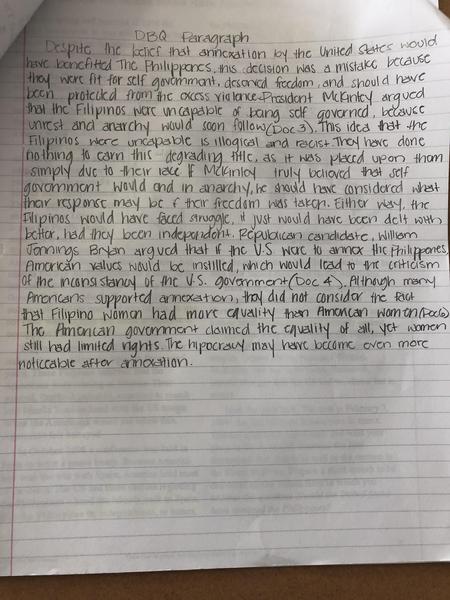 DBQ Paragraph
Despite the belief that annexation by the United States would
have benefitted The Philippones, this decision was a mistake because
they were fit for self government, desered freedom, and should have
been protected from the excess violence. President McKinley argued
that the Filipinos were uncapable of being self governed, because
unrest and anarchy would soon follow (Doc 3). This idea that the
Filipinos were uncapable is illogical and racist. They have done
nothing to earn this degrading title, as it was placed upon them
simply due to their race. If McKinley truly believed that self
government would end in anarchy, he should have considered what
their response may be if their freedom was taken. Either way, the
Filipinos would have faced struggle, it just would have been delt with
better, had they been independent. Republican candidate, William
Jennings Bryan argued that if the U.S were to annex the Philippones,
American values would be instilled, which would lead to the criticism
of the inconsistancy of the U.S. government (Doc 4). Although many
Americans supported annexation, they did not consider the fact
that Filipino women had more equality than American women (Doc 6)
The American government claimed the equality of all, yet women
still had limited rights. The hipocracy may have become even more
noticeable after annexation.